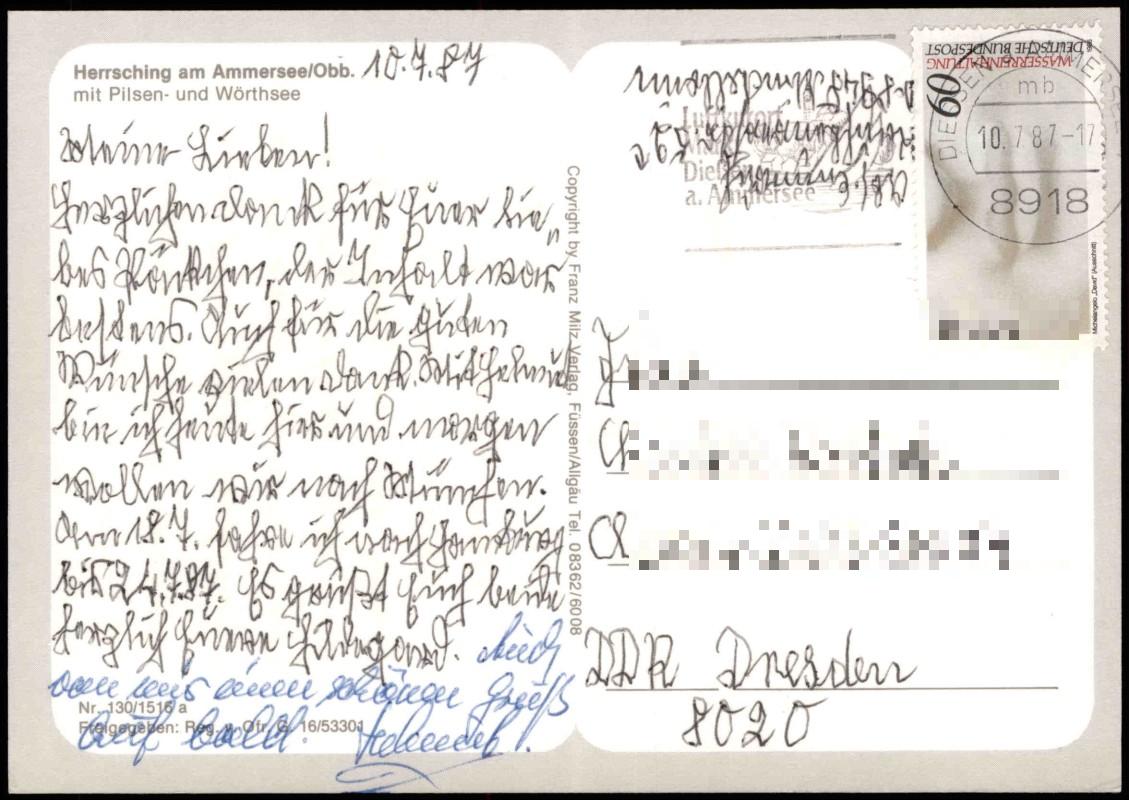 Herrsching am Ammersee/Obb. 10.7.87
mit Pilsen- und Wörthsee
Meine Lieben!
Herzlichen Dank für Euer lie-
bes Päckchen, der Inhalt war
bestens. Auch für die guten
Wünsche vielen Dank. Mit Helmut
bin ich heute hier und morgen
wollen wir nach München.
Am 18.7. fahre ich nach Hamburg
bis 24.7.87. Es grüßt Euch beide
herzlich Eure Hildegard. Auch
von mir einen schönen Gruß
Auf bald. Helmut.
Nr. 130/1516 a
Freigegeben: Reg. v. Ofr. G 16/53301
Copyright by Franz Milz Verlag, Füssen/Allgäu Tel. 08362/6008
Abs.
8948 Mindelheim
Luftkurort
Dießen
a. Ammersee
DEUTSCHE BUNDESPOST
WASSERREINHALTUNG
60
Michelangelo „David" (Ausschnitt)
DIESSEN AMMERSEE
mb
10.7.87-17
8918
DDR Dresden
8020